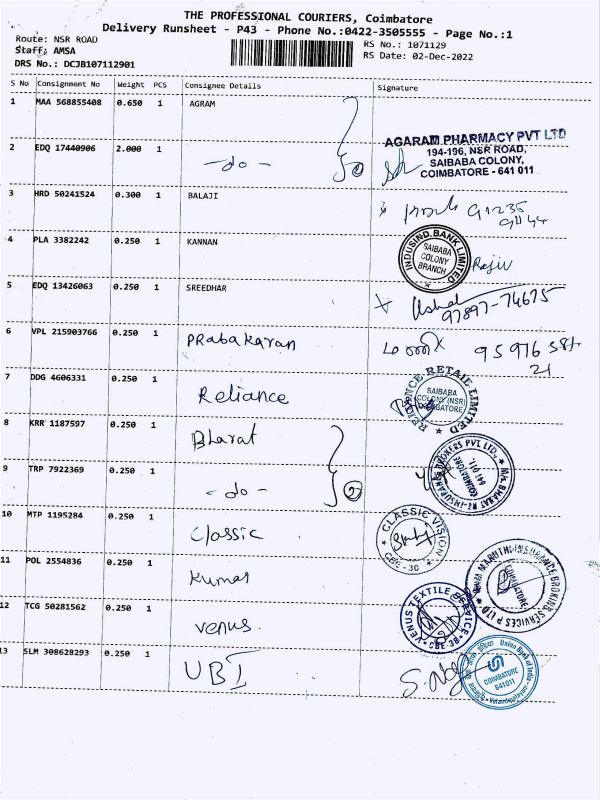 THE PROFESSIONAL COURIERS, Coimbatore
Delivery Runsheet - P43 - Phone No.:0422-3505555 - Page No.:1
Route: NSR ROAD
Staff: AMSA
DRS No.: DCJB107112901
RS No.: 1071129
RS Date: 02-Dec-2022
S No Consignment No Weight PCS Consignee Details Signature
1 MAA 568855408 0.650 1 AGRAM
AGARAM PHARMACY PVT LTD
194-196, NSR ROAD,
SAIBABA COLONY,
COIMBATORE - 641 011
2 EDQ 17440906 2.000 1 -do- 2
3 HRD 50241524 0.300 1 BALAJI
4 PLA 3382242 0.250 1 KANNAN
INDUSIND BANK LIMITED
SAIBABA
COLONY
BRANCH
Rajiv
5 EDQ 13426063 0.250 1 SREEDHAR
97897-74675
6 VPL 215903766 0.250 1 PRabakaran
7 DDG 4606331 0.250 1 Reliance
RELIANCE RETAIL LIMITED
SAIBABA
COLONY (NSR)
COIMBATORE
8 KRR 1187597 0.250 1 Bharat
M/K. BHARAT RE-INSURANCE BROKERS PVT LTD.,
COIMBATORE
641 011.
9 TRP 7922369 0.250 1 -do- 2
10 MTP 1195284 0.250 1 Classic
CLASSIC VISION
CBE - 30
11 POL 2554836 0.250 1 Kumar
MARUTHI INSURANCE BROKING SERVICES P LTD
COIMBATORE
12 TCG 50281562 0.250 1 venus.
VENUS TEXTILE SERVICE
CBE-38
13 SLM 308628293 0.250 1 UBI
Union Bank of India
COIMBATORE
641011